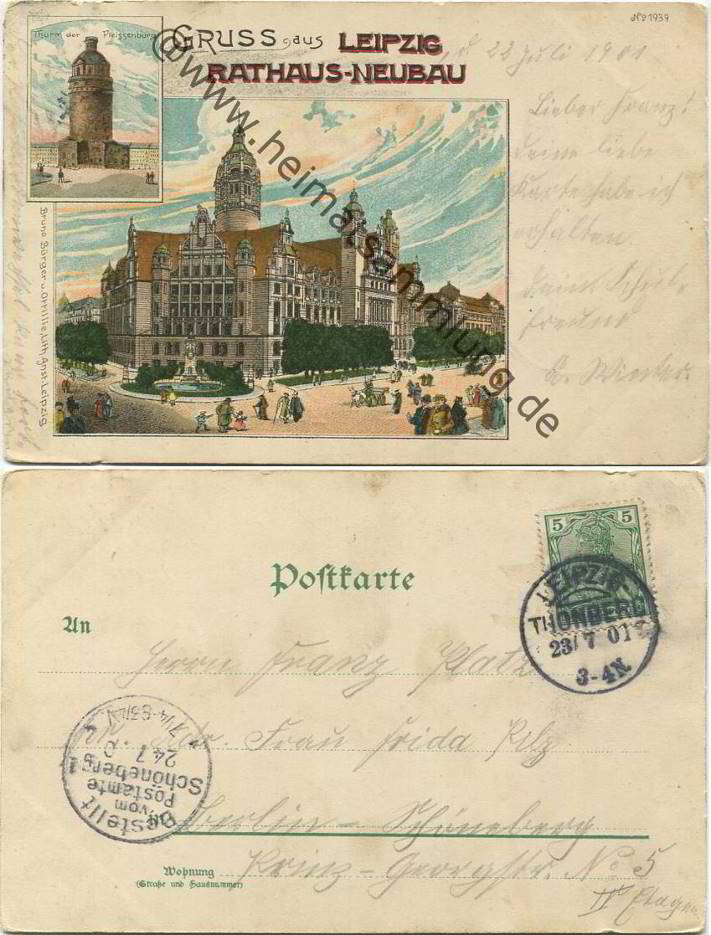 No 1939
Thurm der Pleissenburg
GRUSS aus LEIPZIG
RATHAUS-NEUBAU
Bruno Bürger u. Ottillie, Lith. Anst. Leipzig
d. 22 Juli 1901
Lieber Franz!
Deine liebe
Karte habe ich
erhalten.
Dein Schul-
freund
Winter.
@www.heimatsammlung.de
Postkarte
5 5
LEIPZIG
THONBERG
23/7 01
3-4N.
An
Herrn Franz Platz
Adr. Frau Frida Pilz
Berlin-Schöneberg
Wohnung
(Straße und Hausnummer)
Prinz-Georgstr. No 5
II Etagen
Bestellt
vom
Postamte
Schöneberg 1
24.7.